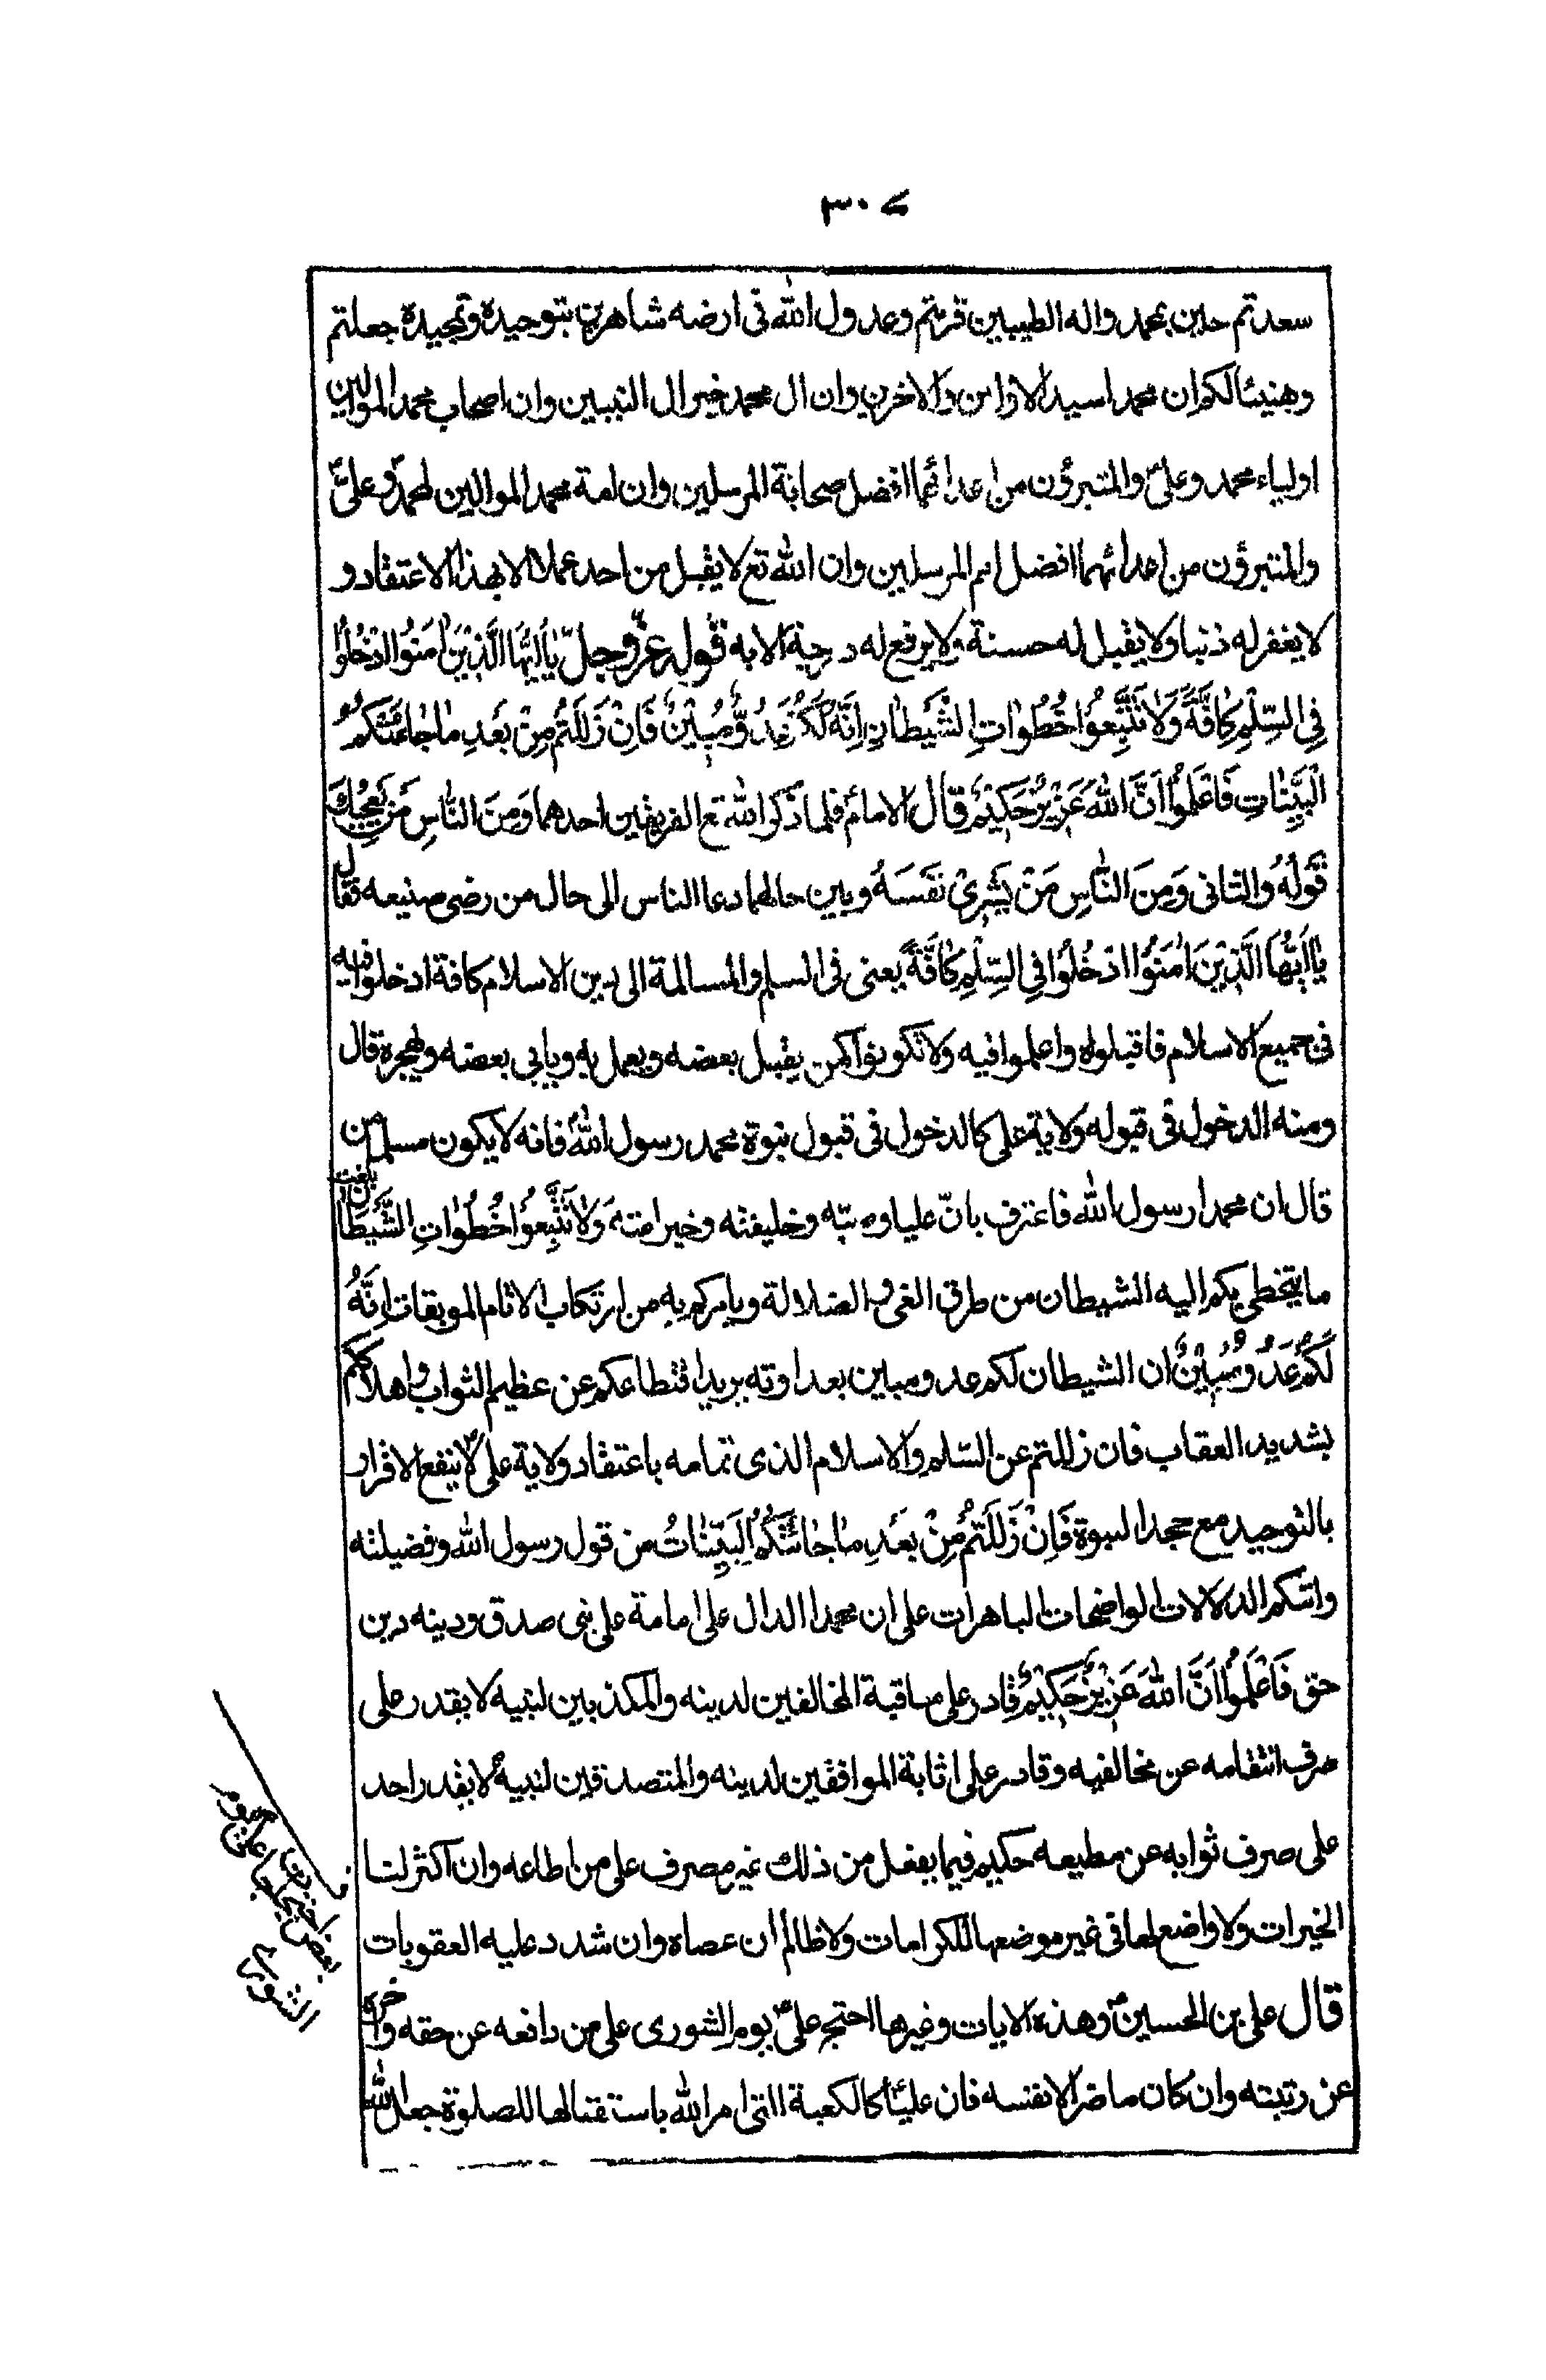 ٣٠٧
سعدتم حين بمحمد واله الطيبين قرنتم وعدول الله فى ارضه شاهرين بتوحيده وتمجيده جعلتم
وهنيئا لكم ان محمدا سيد الاولين والاخرين وان ال محمد خير ال النبيين وان اصحاب محمد الموالين
اولياء محمد وعلىّ والمتبرؤن من اعدائهما افضل صحابة المرسلين وان امة محمد الموالين لمحمد وعلىّ
والمتبرؤن من اعدائهما افضل امم المرسلين وان الله تع لا يقبل من احد عملا الا بهذا الاعتقاد و
لا يغفر له ذنبا ولا يقبل له حسنة ولا يرفع له درجة الا به قوله عزّ وجلّ يٰا اَيُّهَا الَّذِيْنَ اٰمَنُوْا ادْخُلُوْا
فِى السِّلْمِ كٰافَّةً وَلاٰ تَتَّبِعُوْا خُطُوٰاتِ الشَّيْطٰانِ اِنَّهُ لَكُمْ عَدُوٌّ مُبِيْنٌ فَاِنْ زَلَلْتُمْ مِنْ بَعْدِ مٰا جٰاءَتْكُمُ
الْبَيِّنٰاتِ فَاعْلَمُوْا اَنَّ اللهَ عَزِيْزٌ حَكِيْمٌ قال الامام فلما ذكر الله تع الفريقين احدهما وَمِنَ النّٰاسِ مَنْ يُعْجِبُكَ
قَوْلُهُ والثانى وَمِنَ النّٰاسِ مَنْ يَشْرِىْ نَفْسَهُ وبين حالهما دعا الناس الى حال من رضى صنيعه فقال
يٰا اَيُّهَا الَّذِيْنَ اٰمَنُوْا ادْخُلُوْا فِى السِّلْمِ كٰافَّةً يعنى فى السلم والمسالمة الى دين الاسلام كافة ادخلوا فيه
فى جميع الاسلام فاقبلوه واعملوا فيه ولا تكونوا كمن يقبل بعضه ويعمل به ويابى بعضه ويهجره قال
ومنه الدخول فى قبوله ولاية على كالدخول فى قبول نبوة محمد رسول الله فانه لا يكون مسلما من
قال ان محمدا رسول الله فاعترف بانّ عليا وصيّه وخليفته وخير امته وَلاٰ تَتَّبِعُوْا خُطُوٰاتِ الشَّيْطٰانِ
ما يتخطى بكم اليه الشيطان من طرق الغى والضلالة ويامركم به من ارتكاب الاثام الموبقات اِنَّهُ
لَكُمْ عَدُوٌّ مُبِيْنٌ ان الشيطان لكم عدو مبين بعداوته يريد اقتطاعكم عن عظيم الثواب واهلاككم
بشديد العقاب فان زللتم عن السّلم والاسلام الذى تمامه باعتقاد ولاية علىّ لا ينفع الاقرار
بالتوحيد مع جحد النبوة فَاِنْ زَلَلْتُمْ مِنْ بَعْدِ مٰا جٰاءَتْكُمُ الْبَيِّنٰاتُ من قول رسول الله وفضيلته
واتتكم الدلالات الواضحات الباهرات على ان محمدا الدال على امامة على نبى صدق ودينه دين
حق فَاعْلَمُوْا اَنَّ اللهَ عَزِيْزٌ حَكِيْمٌ قادر على معاقبة المخالفين لدينه والمكذبين لنبيه لا يقدر على
صرف انتقامه عن مخالفيه وقادر على اثابة الموافقين لدينه والمتصدقين لنبيه لا يقدر احد
على صرف ثوابه عن مطيعه حكيم فيما يفعل من ذلك غير مصرف على من اطاعه وان اكثر لنا
الخيرات ولا واضع لها فى غير موضعها للكرامات ولا ظالم ان عصاه وان شدد عليه العقوبات
قال على بن الحسين وهذه الايات وغيرها احتج علىّ يوم الشورى على من دافعه عن حقه واخره
عن رتبته وان كان ما ضر الا نفسه فان عليّا كالكعبة التى امر الله باستقبالها للصلوة جعل الله
بعض احتجاجات
الشورى